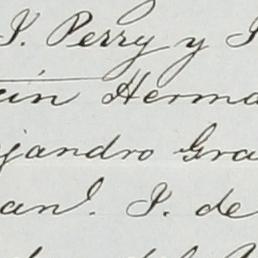 J. Perry y J
ín Herma
jandro Gra
an J. de